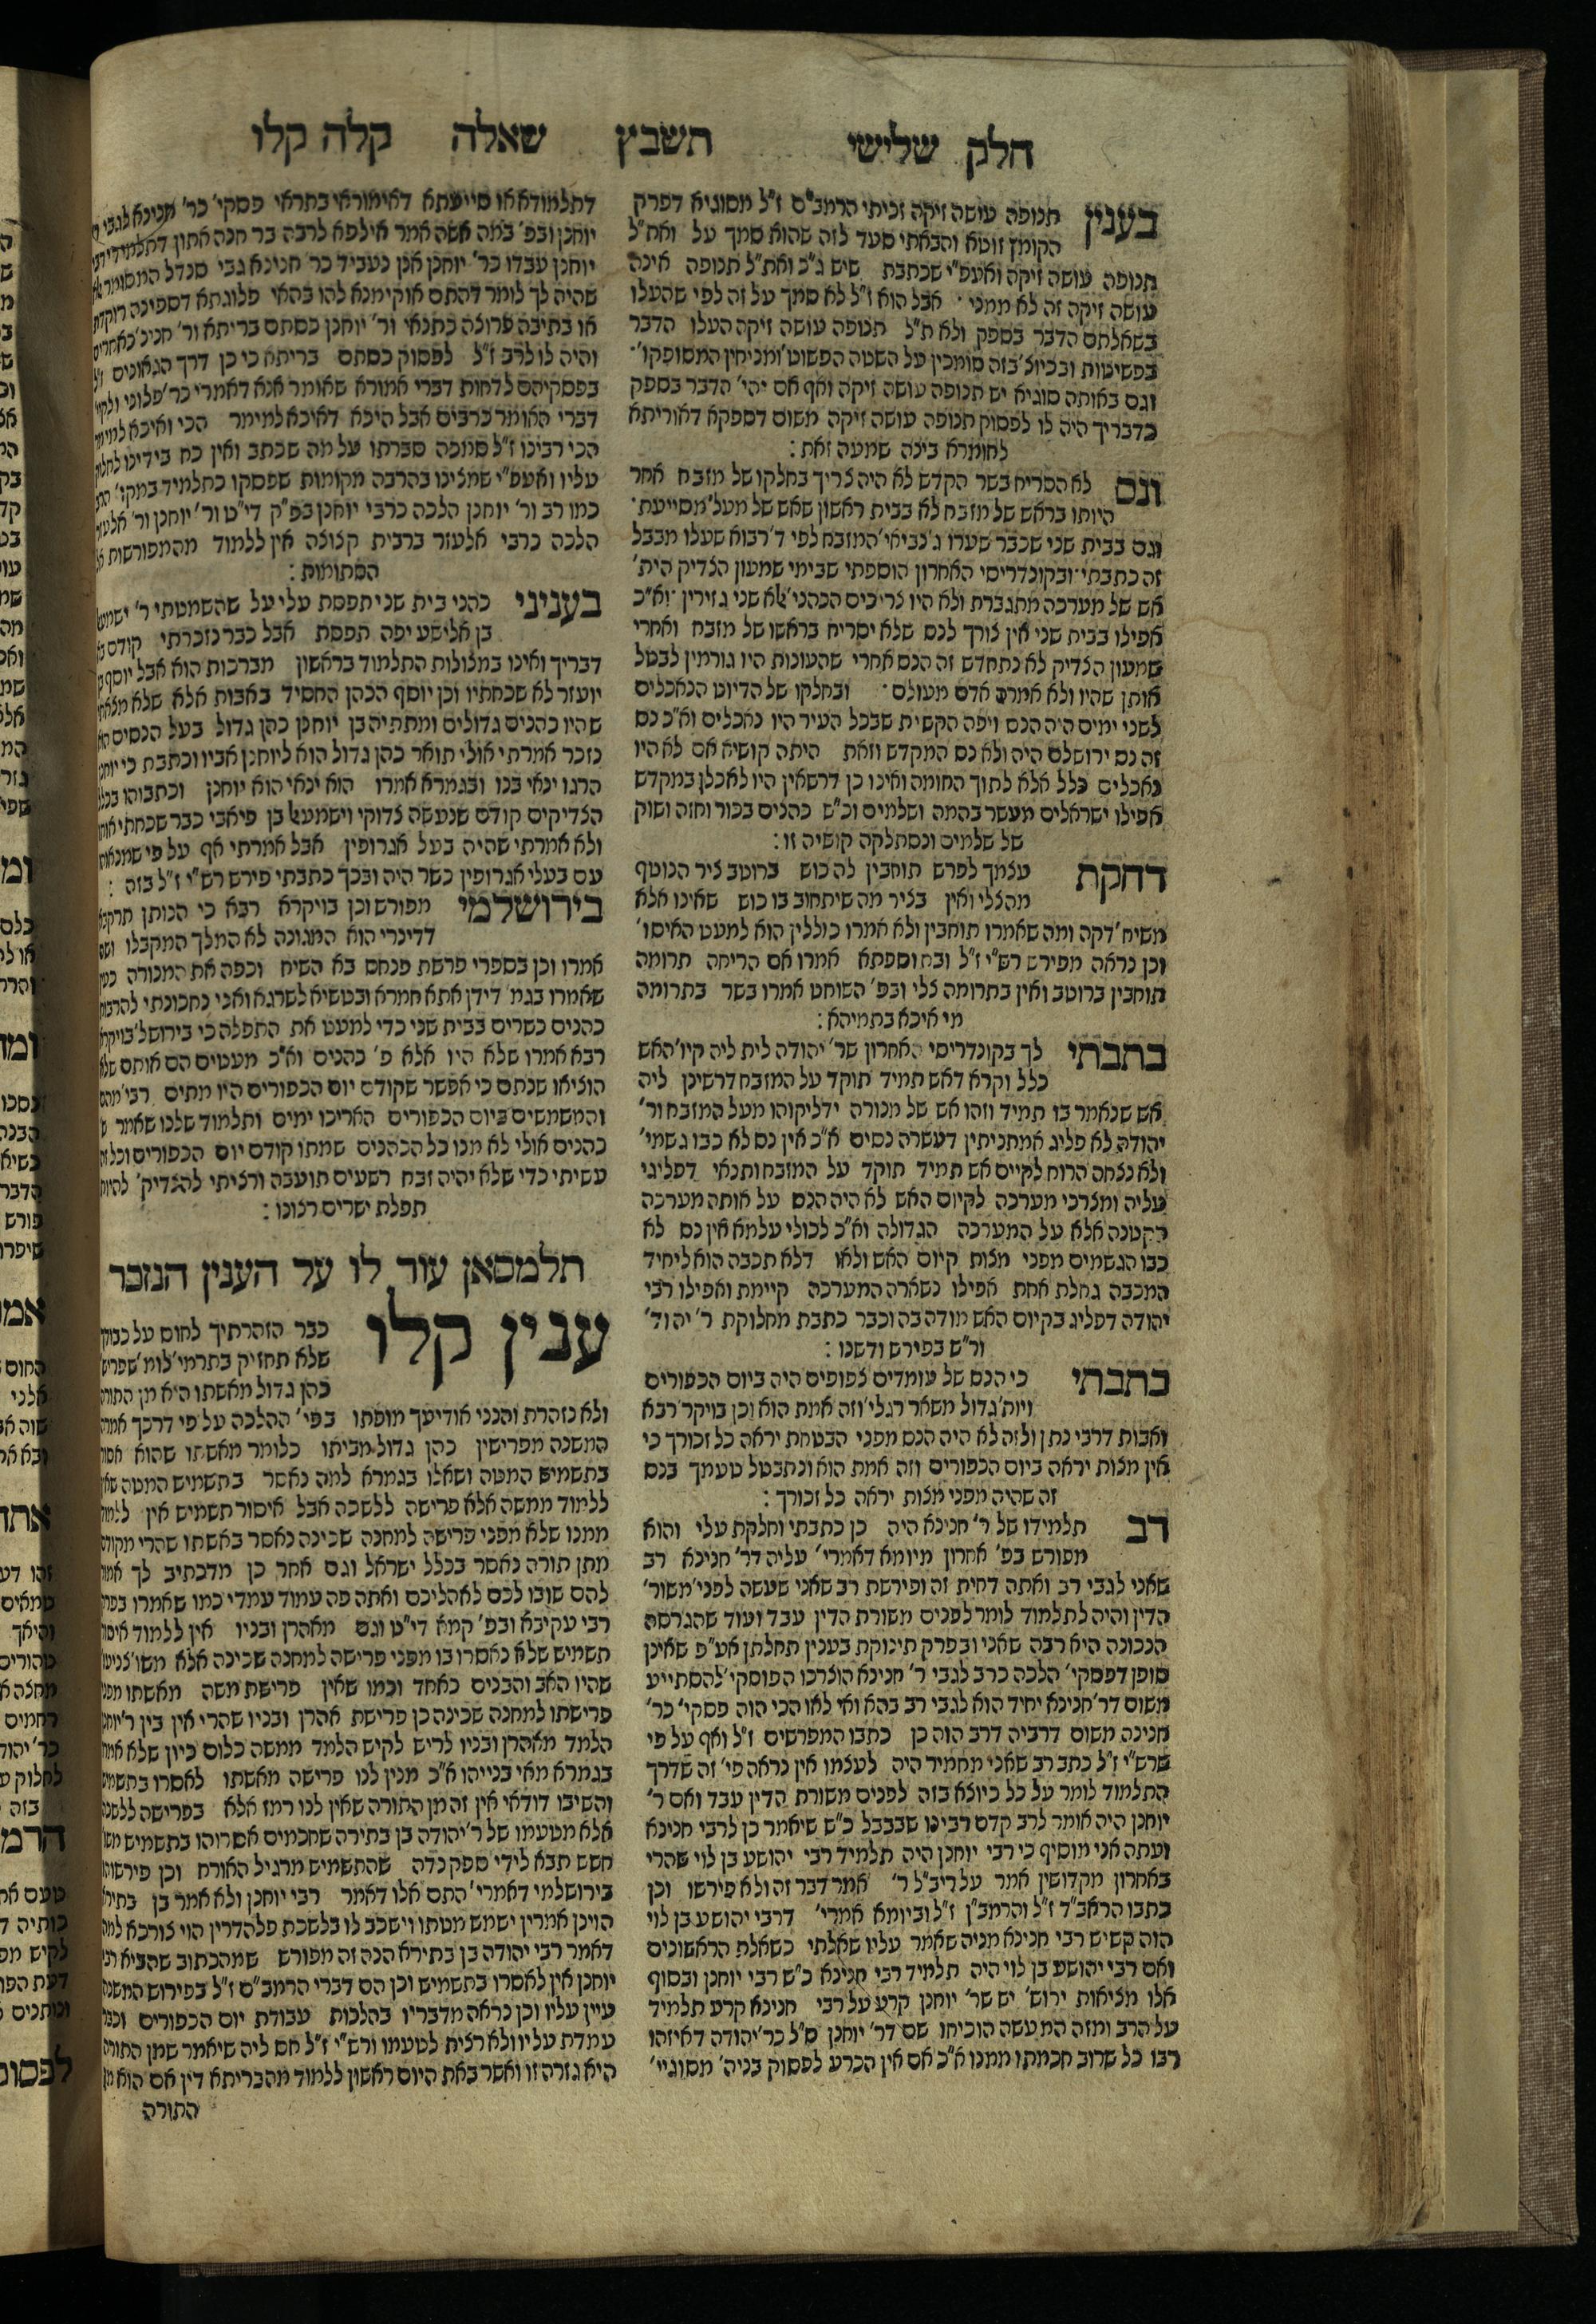 חלק שלישי תשבץ שאלה קלה קלו
בענין תנופה עושה זיקה זכיתי הרמב"ם ז"ל מסוגיא דפרק
הקומץ זוטא והבאתי סעד לזה שהוא סמך על ואת"ל
תנופה עושה זיקה ואעפ"י שכתבת שיש ג"כ ואת"ל תנופה אינה
עושה זיקה זה לא ממני אבל הוא ז"ל לא סמך על זה לפי שהעלו
בשאלתם הדבר בספק ולא ת"ל תנופה עושה זיקה העלו הדבר
בפשיטות ובכיוצ' בזה סומכין על השטה הפשוט' ומניחין המסופקו'
וגם באותה סוגיא יש תנופה עושה זיקה ואף אם יהי' הדבר בספק
כדבריך היה לו לפסוק תנופה עושה זיקה משום דספקא דאוריתא
לחומרא בינה שמעה זאת :
ונס לא הסריח בשר הקדש לא היה צריך בחלקו של מזבח אחר
היותו בראש של מזבח לא בבית ראשון שאש של מעל' מסייעת
וגם בבית שני שכבר שערו ג' נביאי' המזבח לפי ד' רבוא שעלו מבבל
זה כתבתי ובקונדריסי האחרון הוספתי שבימי שמעון הצדיק הית'
אש של מערכה מתגברת ולא היו צריכים הכהני' אלא שני גזירין וא"כ
אפילו בבית שני אין צורך לנס שלא יסריח בראשו של מזבח ואחרי
שמעון הצדיק לא נתחדש זה הנס אחרי שהעונות היו גורמין לבטל
אותן שהיו ולא אמרה אדם מעולם ובחלקו של הדיוט הנאכלים
לשני ימים היה הנס ויפה הקשית שבכל העיר היו נאכלים וא"כ נס
זה נס ירושלם היה ולא נס המקדש וזאת היתה קושיא אם לא היו
נאכלים כלל אלא לתוך החומה ואינו כן דרשאין היו לאכלן במקדש
אפילו ישראלים מעשר בהמה ושלמים וכ"ש כהנים בכור וחזה ושוק
של שלמים ונסתלקה קושיה זו :
דחקת עצמך לפרש תוחבין לה כוש ברוטב ציר הנוטף
מהצלי ואין בציר מה שיתחוב בו כוש שאינו אלא
משיח' דקה ומה שאמרו תוחבין ולא אמרו כוללין הוא למעט האיסו'
וכן נראה מפירש רש"י ז"ל ובתוספתא אמרו אם הריחה תרומה
תוחבין ברוטב ואין בתרומה צלי ובפ' השוחט אמרו בשר בתרומה
מי איכא בתמיהא :
כתבתי לך בקונדריסי האחרון שר' יהודה לית ליה קיו' האש
כלל וקרא דאש תמיד תוקד על המזבח דרשינן ליה
אש שנאמר בו תמיד וזהו אש של מנורה ידליקוהו מעל המזבח ור'
יהודה לא פליג אמתניתין דעשרה נסים א"כ אין נס לא כבו גשמי'
ולא נצחה הרוח לקיים אש תמיד תוקד על המזבח ותנאי דפליגי
עליה ומצרכי מערכה לקיום האש לא היה הנס על אותה מערכה
הקטנה אלא על המערכה הגדולה וא"כ לכולי עלמא אין נס לא
כבו הגשמים מפני מצות קיום האש ולאו דלא תכבה הוא ליחיד
המכבה גחלת אחת אפילו נשארה המערכה קיימת ואפילו רבי
יהודה דפליג בקיום האש מודה בה וכבר כתבת מחלוקת ר' יהוד'
ור"ש בפירש ודשנו :
כתבתי כי הנס של עומדים צפופים היה ביום הכפורים
ויות' גדול משאר רגלי' וזה אמת הוא וכן בויקר' רבא
ואבות דרבי נתן ולזה לא היה הנס מפני הבטחת יראה כל זכורך כי
אין מצות יראה ביום הכפורים וזה אמת הוא ונתבטל טעמך בנס
זה שהיה מפני מצות יראה כל זכורך :
רב תלמידו של ר' חנינא היה כן כתבתי וחלקת עלי והוא
מפורש בפ' אחרון מיומא דאמרי' עליה דר' חנינא רב
שאני לגבי רב ואתה דחית זה ופירשת רב שאני שעשה לפני' משור'
הדין והיה לתלמוד לומר לפנים משורת הדין עבד ועוד שהגרסה
הנכונה היא רבה שאני ובפרק תינוקת בענין תחלתן אע"פ שאינן
סופן דפסקי' הלכה כרב לגבי ר' חנינא הוצרכו הפוסקי' להסתייע
משום דר' חנינא יחיד הוא לגבי רב בהא ואי לאו הכי הוה פסקי' כר'
חנינה משום דרביה דרב הוה כן כתבו המפרשים ז"ל ואף על פי
שרש"י ז"ל כתב רב שאני מחמיר היה לעצמו אין נראה פי' זה שדרך
התלמוד לומר על כל כיוצא בזה לפנים משורת הדין עבד ואם ר'
יוחנן היה אומר לרב קדם רבינו שבבבל כ"ש שיאמר כן לרבי חנינא
ועתה אני מוסיף כי רבי יוחנן היה תלמיד רבי יהושע בן לוי שהרי
באחרון מקדושין אמר על ריב"ל ר' אמר דבר זה ולא פירשו וכן
כתבו הראב"ד ז"ל והרמב"ן ז"ל וביומא אמרי' דרבי יהושע בן לוי
הוה קשיש רבי חנינא מניה שאמר עליו שאלתי כשאלת הראשונים
ואם רבי יהושע בן לוי היה תלמיד רבי חנינא כ"ש רבי יוחנן ובסוף
אלו מציאות ירוש' יש שר' יוחנן קרע על רבי חנינא קרע תלמיד
על הרב ומזה המעשה הוכיחו שם דר' יוחנן ס"ל כר' יהודה דאיזהו
רבו כל שרוב חכמתו ממנו א"כ אם אין הכרע לפסוק בניה' מסוגיי'
דתלמודא או סייעתא דאימוראי בתראי פסקי' כר' חנינא לגבי
יוחנן ובפ' במה אשה אמר אילפא לרבה בר חנה אתון דתלמידי
יוחנן עבדו כר' יוחנן אנן נעביד כר' חנינא גבי סנדל המסומר
שהיה לך לומר דהתם אוקימנא להו בהאי פלוגתא דספינה רוקדת
או בתיבה פרוצה כתנאי ור' יוחנן כסתם בריתא ור' חנינ' כאחרים
והיה לו לרב ז"ל לפסוק כסתם בריתא כי כן דרך הגאונים ז"ל
בפסקיהם לדחות דברי אמורא שאומר אנא דאמרי כר' פלוני
דברי האומר כרבים אבל היכא דאיכא למימר הכי ואיכא למימר
הכי רבינו ז"ל סמכה סברתו על מה שכתב ואין כח בידינו לחלוק
עליו ואעפ"י שמצינו בהרבה מקומות שפסקו כתלמיד במקו' הרב
כמו רב ור' יוחנן הלכה כרבי יוחנן בפ"ק די"ט ור' יוחנן ור' אלעזר
הלכה כרבי אלעזר ברבית קצוצה אין ללמוד מהמפורשות
הסתומות :
בעניני כהני בית שני תפסת עלי על שהשמטתי ר' ישמעאל
בן אלישע יפה תפסת אבל כבר נזכרתי קודם
דבריך ואינו במגילות התלמוד בראשון מברכות הוא אבל יוסף
יועזר לא שכחתיו וכן יוסף הכהן החסיד באבות אלא שלא מצאתי
שהיו כהנים גדולים ומתתיה בן יוחנן כהן גדול בעל הנסים
נזכר אמרתי אולי תואר כהן גדול הוא ליוחנן אביו וכתבת כי יוחנן
הרגו ינאי בנו ובגמרא אמרו הוא ינאי הוא יוחנן וכתבוהו בכלל
הצדיקים קודם שנעשה צדוקי וישמעאל בן פיאבי כבר שכחתי אותו
ולא אמרתי שהיה בעל אגרופין אבל אמרתי אף על פי שמנאוהו
עם בעלי אגרופין כשר היה ובכך כתבתי פירש רש"י ז"ל בזה :
בירושלמי מפורש וכן בויקרא רבא כי הנותן תרקבא
דדינרי הוא המגונה לא המלך המקבלו
אמרו וכן בספרי פרשת פנחס בא השיח וכפה את המנורה
שאמרו בגמ' דידן אתא חמרא ובטשיא לשרגא ואני נתכונתי להרבות
כהנים כשרים בבית שני כדי למעט את התפלה כי בירושל' בויקרא
רבא אמרו שלא היו אלא פ' כהנים וא"כ מעטים הם אותם שלא
הוציאו שנתם כי אפשר שקודם יום הכפורים היו מתים רבי' מהם
והמשמשים ביום הכפורים האריכו ימים ותלמוד שלנו שאמר
כהנים אולי לא מנו כל הכהנים שמתו קודם יום הכפורים וכל זה
עשיתי כדי שלא יהיה זבח רשעים תועבה ורציתי להצדיק' להיות
תפלת ישרים רצונו :
תלמסאן עוד לו על הענין הנזכר
ענין קלו כבר הזהרתיך לחוס על כבודך
שלא תחזיק בתרמי' לומ' שפרישת
כהן גדול מאשתו היא מן התורה
ולא נזהרת והנני אודיעך מופתו בפי' ההלכה על פי דרכך אמרה
המשנה מפרישין כהן גדול מביתו כלומר מאשתו שהוא אסור
בתשמיש המטה ושאלו בגמרא למה נאסר בתשמיש המטה
ללמוד ממשה אלא פרישה ללשכה אבל איסור תשמיש אין ללמוד
ממנו שלא מפני פרישה למחנה שכינה נאסר באשתו שהרי מקודם
מתן תורה נאסר בכלל ישראל וגם אחר כן מדכתיב לך אמור
להם שובו לכם לאהליכם ואתה פה עמוד עמדי כמו שאמרו בפרק
רבי עקיבא ובפ' קמא די"ט וגם מאהרן ובניו אין ללמוד איסור
תשמיש שלא נאסרו בו מפני פרישה למחנה שכינה אלא משו' צניעו'
שהיו האב והבנים כאחד וכמו שאין פרישת משה מאשתו מפני
פרישתו למחנה שכינה כן פרישת אהרן ובניו שהרי אין בין ר' יוחנן
הלמד מאהרן ובניו לריש לקיש הלמד ממשה כלום כיון שלא אמרו
בגמרא מאי בנייהו א"כ מנין לנו פרישה מאשתו לאסרו בתשמיש
והשיבו דודאי אין זה מן התורה שאין לנו רמז אלא בפרישה ללשכה
אלא מטעמו של ר' יהודה בן בתירה שחכמים אסרוהו בתשמיש
חשש תבא לידי ספק נדה שהתשמיש מרגיל האורח וכן פירשוהו
בירושלמי דאמרי' התם אלו דאמר רבי יוחנן ולא אמר בן בתירא
הוינן אמרין ישמש מטתו וישכב לו בלשכת פלהדרין הוי צורכא למה
דאמר רבי יהודה בן בתירא הנה זה מפורש שמהכתוב שהביא רבי
יוחנן אין לאסרו בתשמיש וכן הם דברי הרמב"ם ז"ל בפירוש המשנה
עיין עליו וכן נראה מדבריו בהלכות עבודת יום הכפורים וכבר
עמדת עליו ולא רצית לטעמו ורש"י ז"ל חס ליה שיאמר שמן התורה
היא גזרה זו ואשר באת היום ראשון ללמוד מהבריתא דין אם הוא מן
התורה